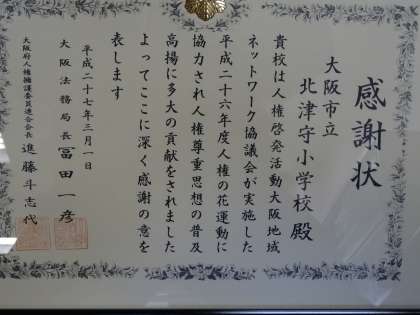 感謝状
大阪市立
北津守小学校殿
貴校は人権啓発活動大阪地域
ネットワーク協議会が実施した
平成二十六年度人権の花運動に
協力され人権尊重思想の普及
高揚に多大の貢献をされました
よってここに深く感謝の意を
表します
平成二十七年三月一日
大阪法務局長 冨田一彦
大阪府人権擁護委員連合会長 進藤斗志代